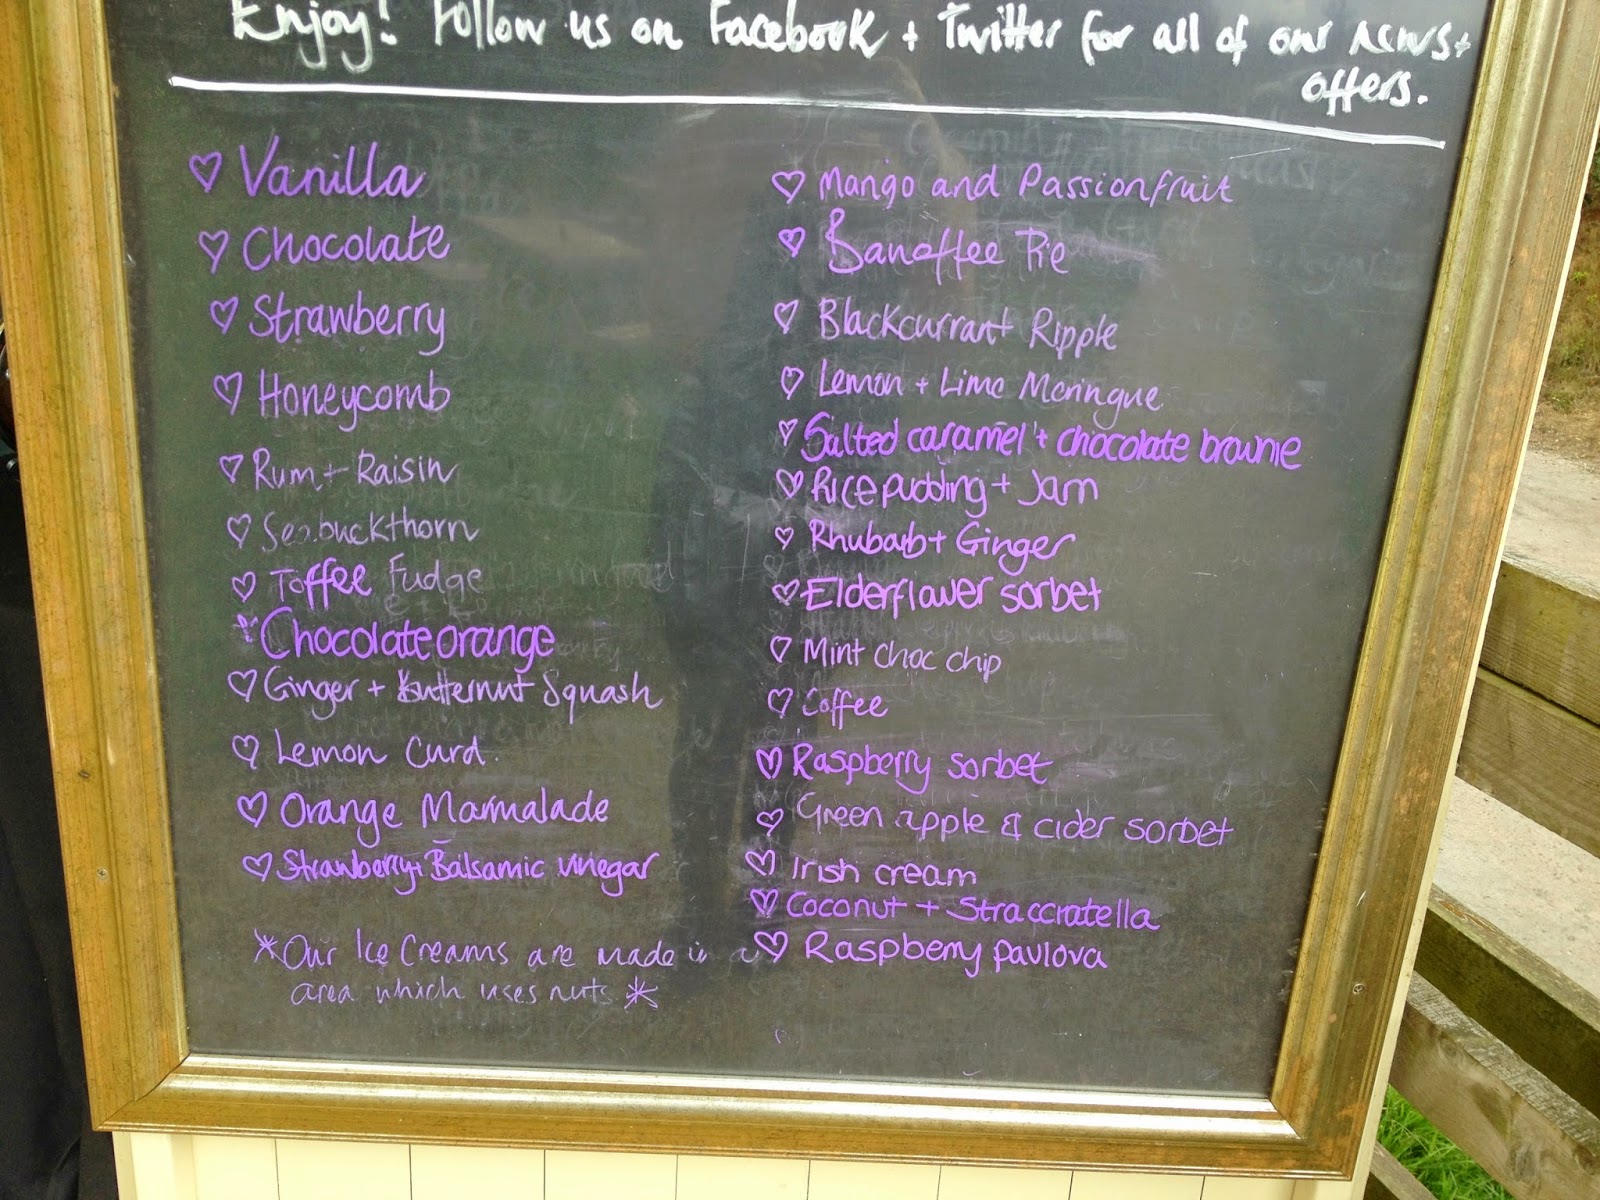 Enjoy! Follow us on Facebook + Twitter for all of our news +
offers.
♡ Vanilla
♡ Chocolate
♡ Strawberry
♡ Honeycomb
♡ Rum + Raisin
♡ Seabuckthorn
♡ Toffee Fudge
♡ Chocolate orange
♡ Ginger + butternut Squash
♡ Lemon Curd
♡ Orange Marmalade
♡ Strawberry + Balsamic vinegar
*Our Ice Creams are made in a
area which uses nuts *
♡ Mango and Passionfruit
♡ Banoffee Pie
♡ Blackcurrant Ripple
♡ Lemon + Lime Meringue
♡ Salted caramel + chocolate brownie
♡ Rice pudding + Jam
♡ Rhubarb + Ginger
♡ Elderflower sorbet
♡ Mint choc chip
♡ Coffee
♡ Raspberry sorbet
♡ Green apple & cider sorbet
♡ Irish cream
♡ Coconut + Straccratella
♡ Raspberry pavlova